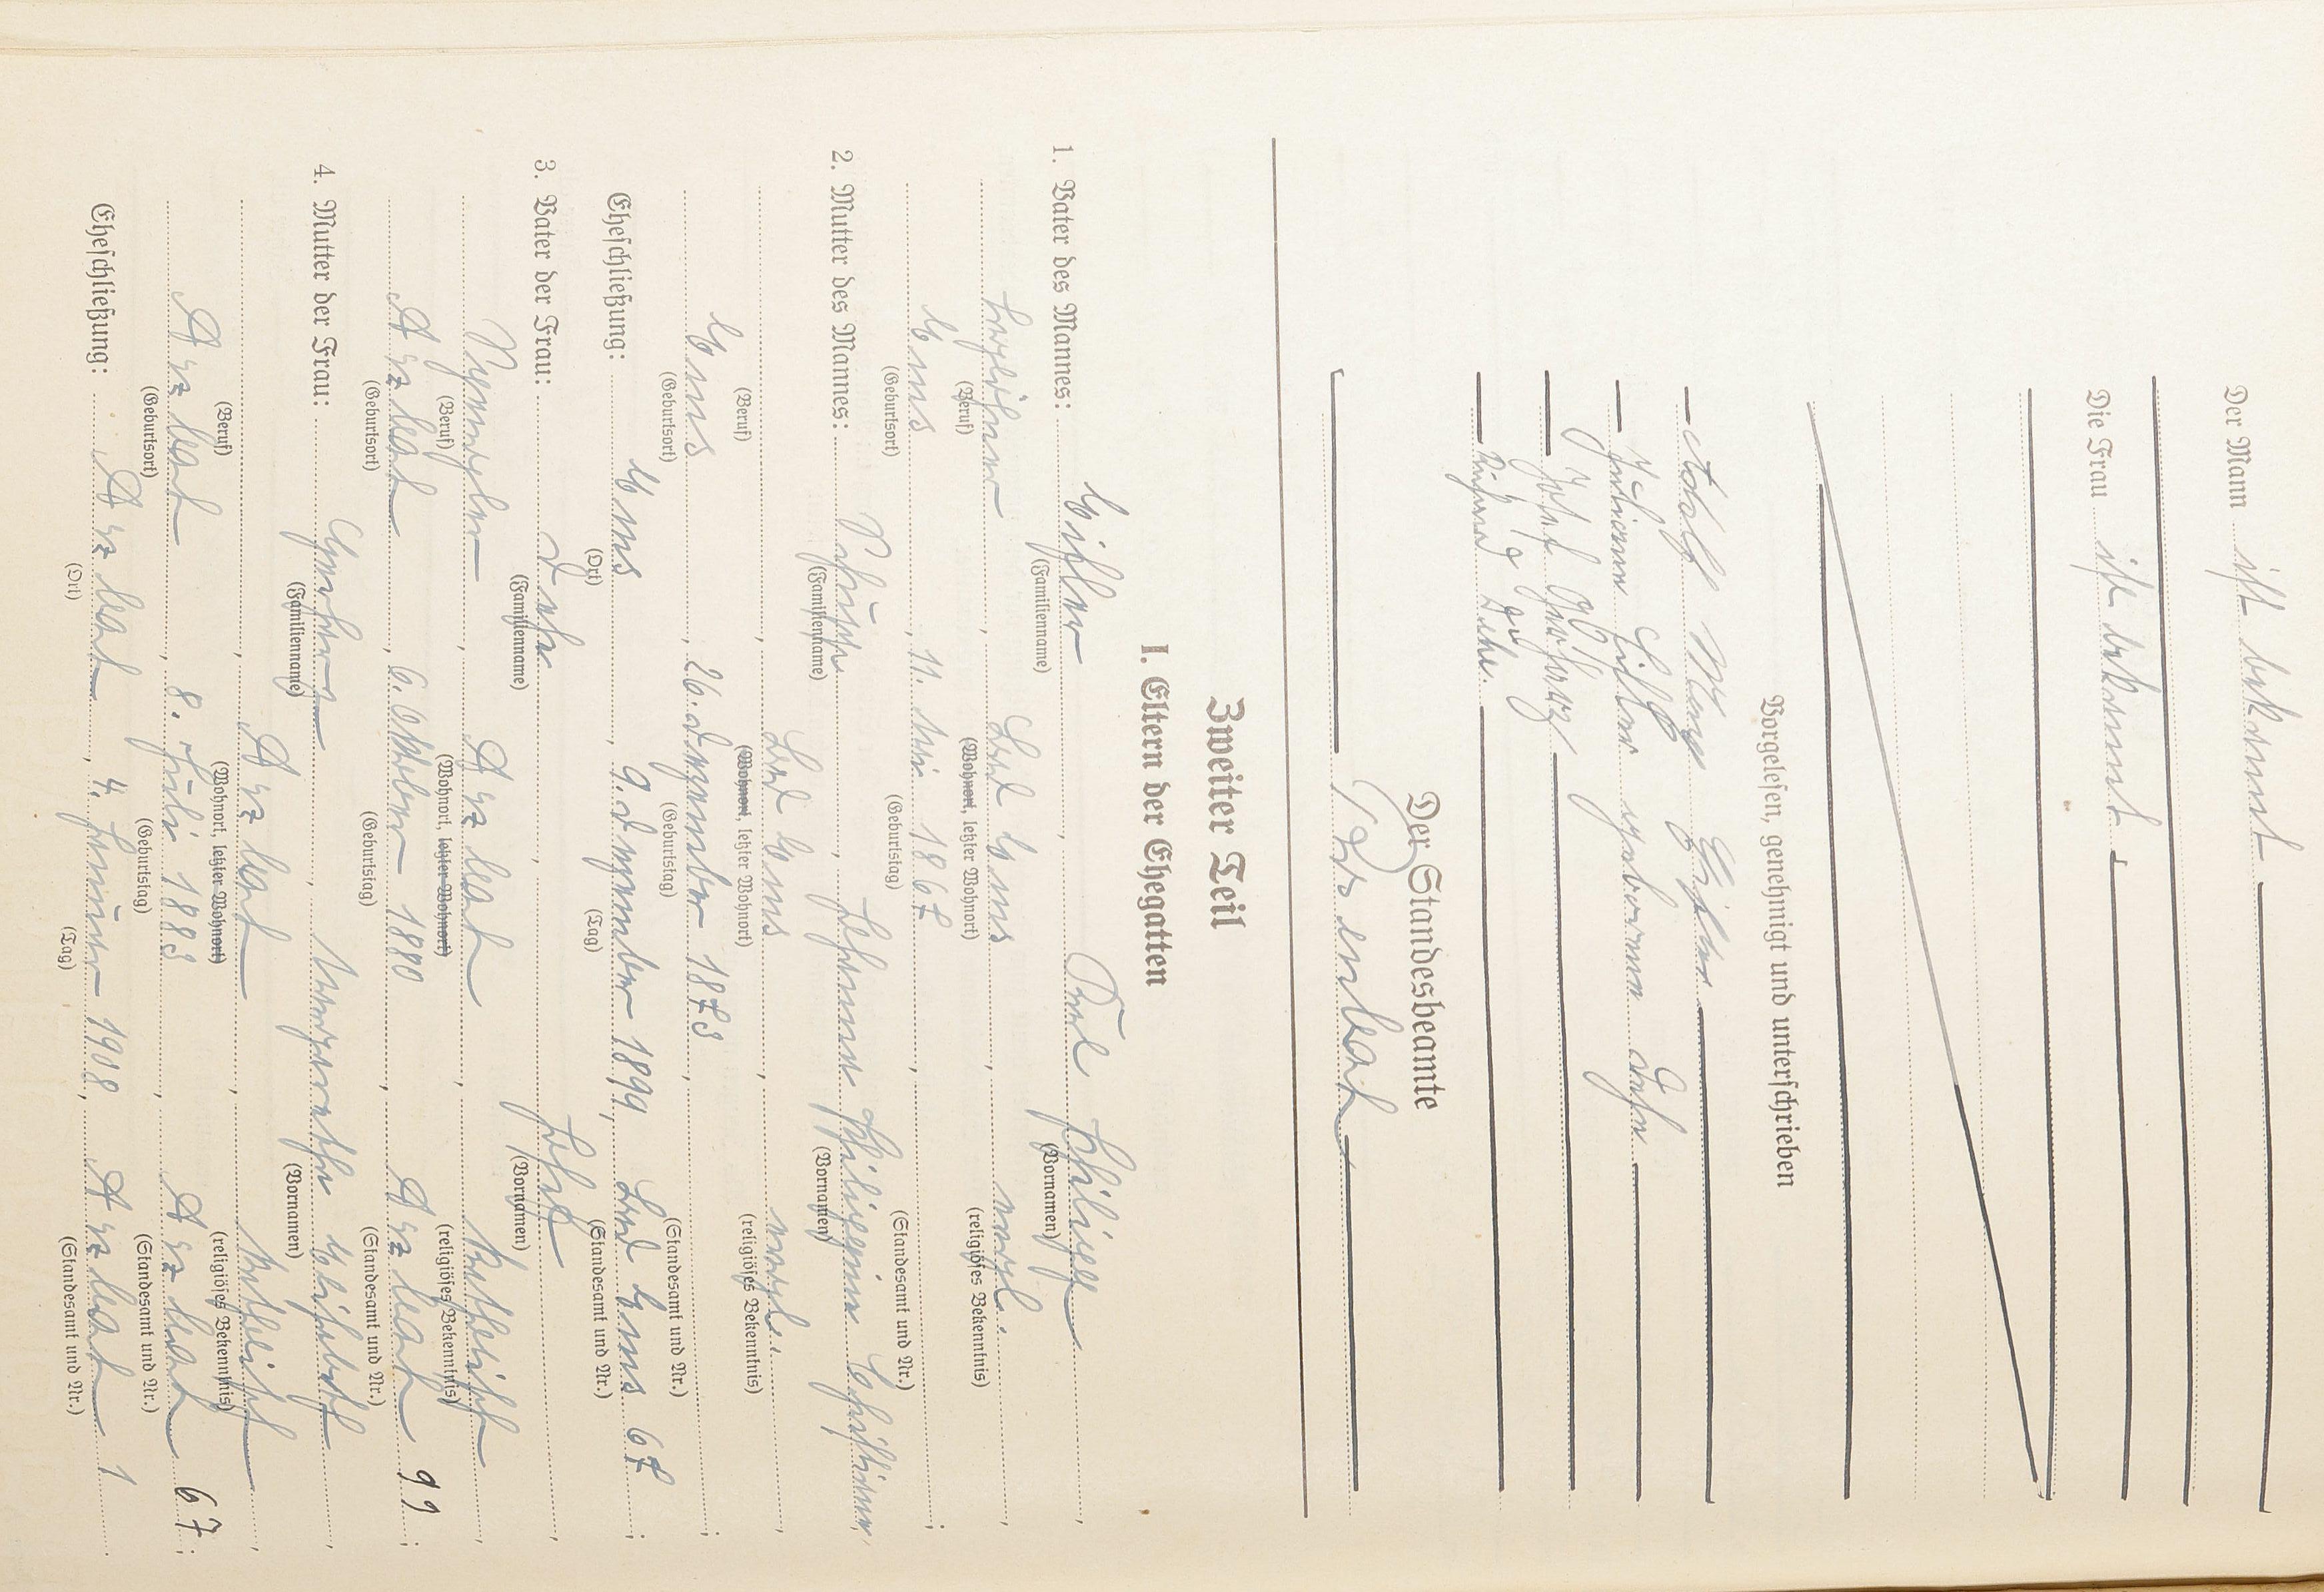 Der Mann ist bekannt
Die Frau ist bekannt.
Vorgelesen, genehmigt und unterschrieben
Adolf
Juliana geborene Dehe
Josef
Dehe.
Der Standesbeamte
Zweiter Teil
I. Eltern der Ehegatten
1. Vater des Mannes: , Karl Philipp ,
(Familienname) (Vornamen)
, Bad Ems , evgl. ,
(Beruf) (Wohnort, letzter Wohnort) (religiöses Bekenntnis)
Ems , 11. Mai 1867 , ;
(Geburtsort) (Geburtstag) (Standesamt und Nr.)
2. Mutter des Mannes: , Johanna Philippine Christiane ,
(Familienname) (Vornamen)
, Bad Ems , evgl. ,
(Beruf) (Wohnort, letzter Wohnort) (religiöses Bekenntnis)
Ems , 26. Dezember 1873 , ;
(Geburtsort) (Geburtstag) (Standesamt und Nr.)
Eheschließung: Ems , 9. Dezember 1899 , Bad Ems 67 ;
(Ort) (Tag) (Standesamt und Nr.)
3. Vater der Frau: Dehe , Josef ,
(Familienname) (Vornamen)
, Arzbach , katholisch ,
(Beruf) (Wohnort, letzter Wohnort) (religiöses Bekenntnis)
Arzbach , 6. Oktober 1880 , Arzbach 99 ;
(Geburtsort) (Geburtstag) (Standesamt und Nr.)
4. Mutter der Frau: , Margaretha Elisabeth ,
(Familienname) (Vornamen)
, Arzbach , katholisch ,
(Beruf) (Wohnort, letzter Wohnort) (religiöses Bekenntnis)
Arzbach , 8. Juli 1883 , Arzbach 67 ;
(Geburtsort) (Geburtstag) (Standesamt und Nr.)
Eheschließung: Arzbach , 4. Januar 1908 , Arzbach 1
(Ort) (Tag) (Standesamt und Nr.)